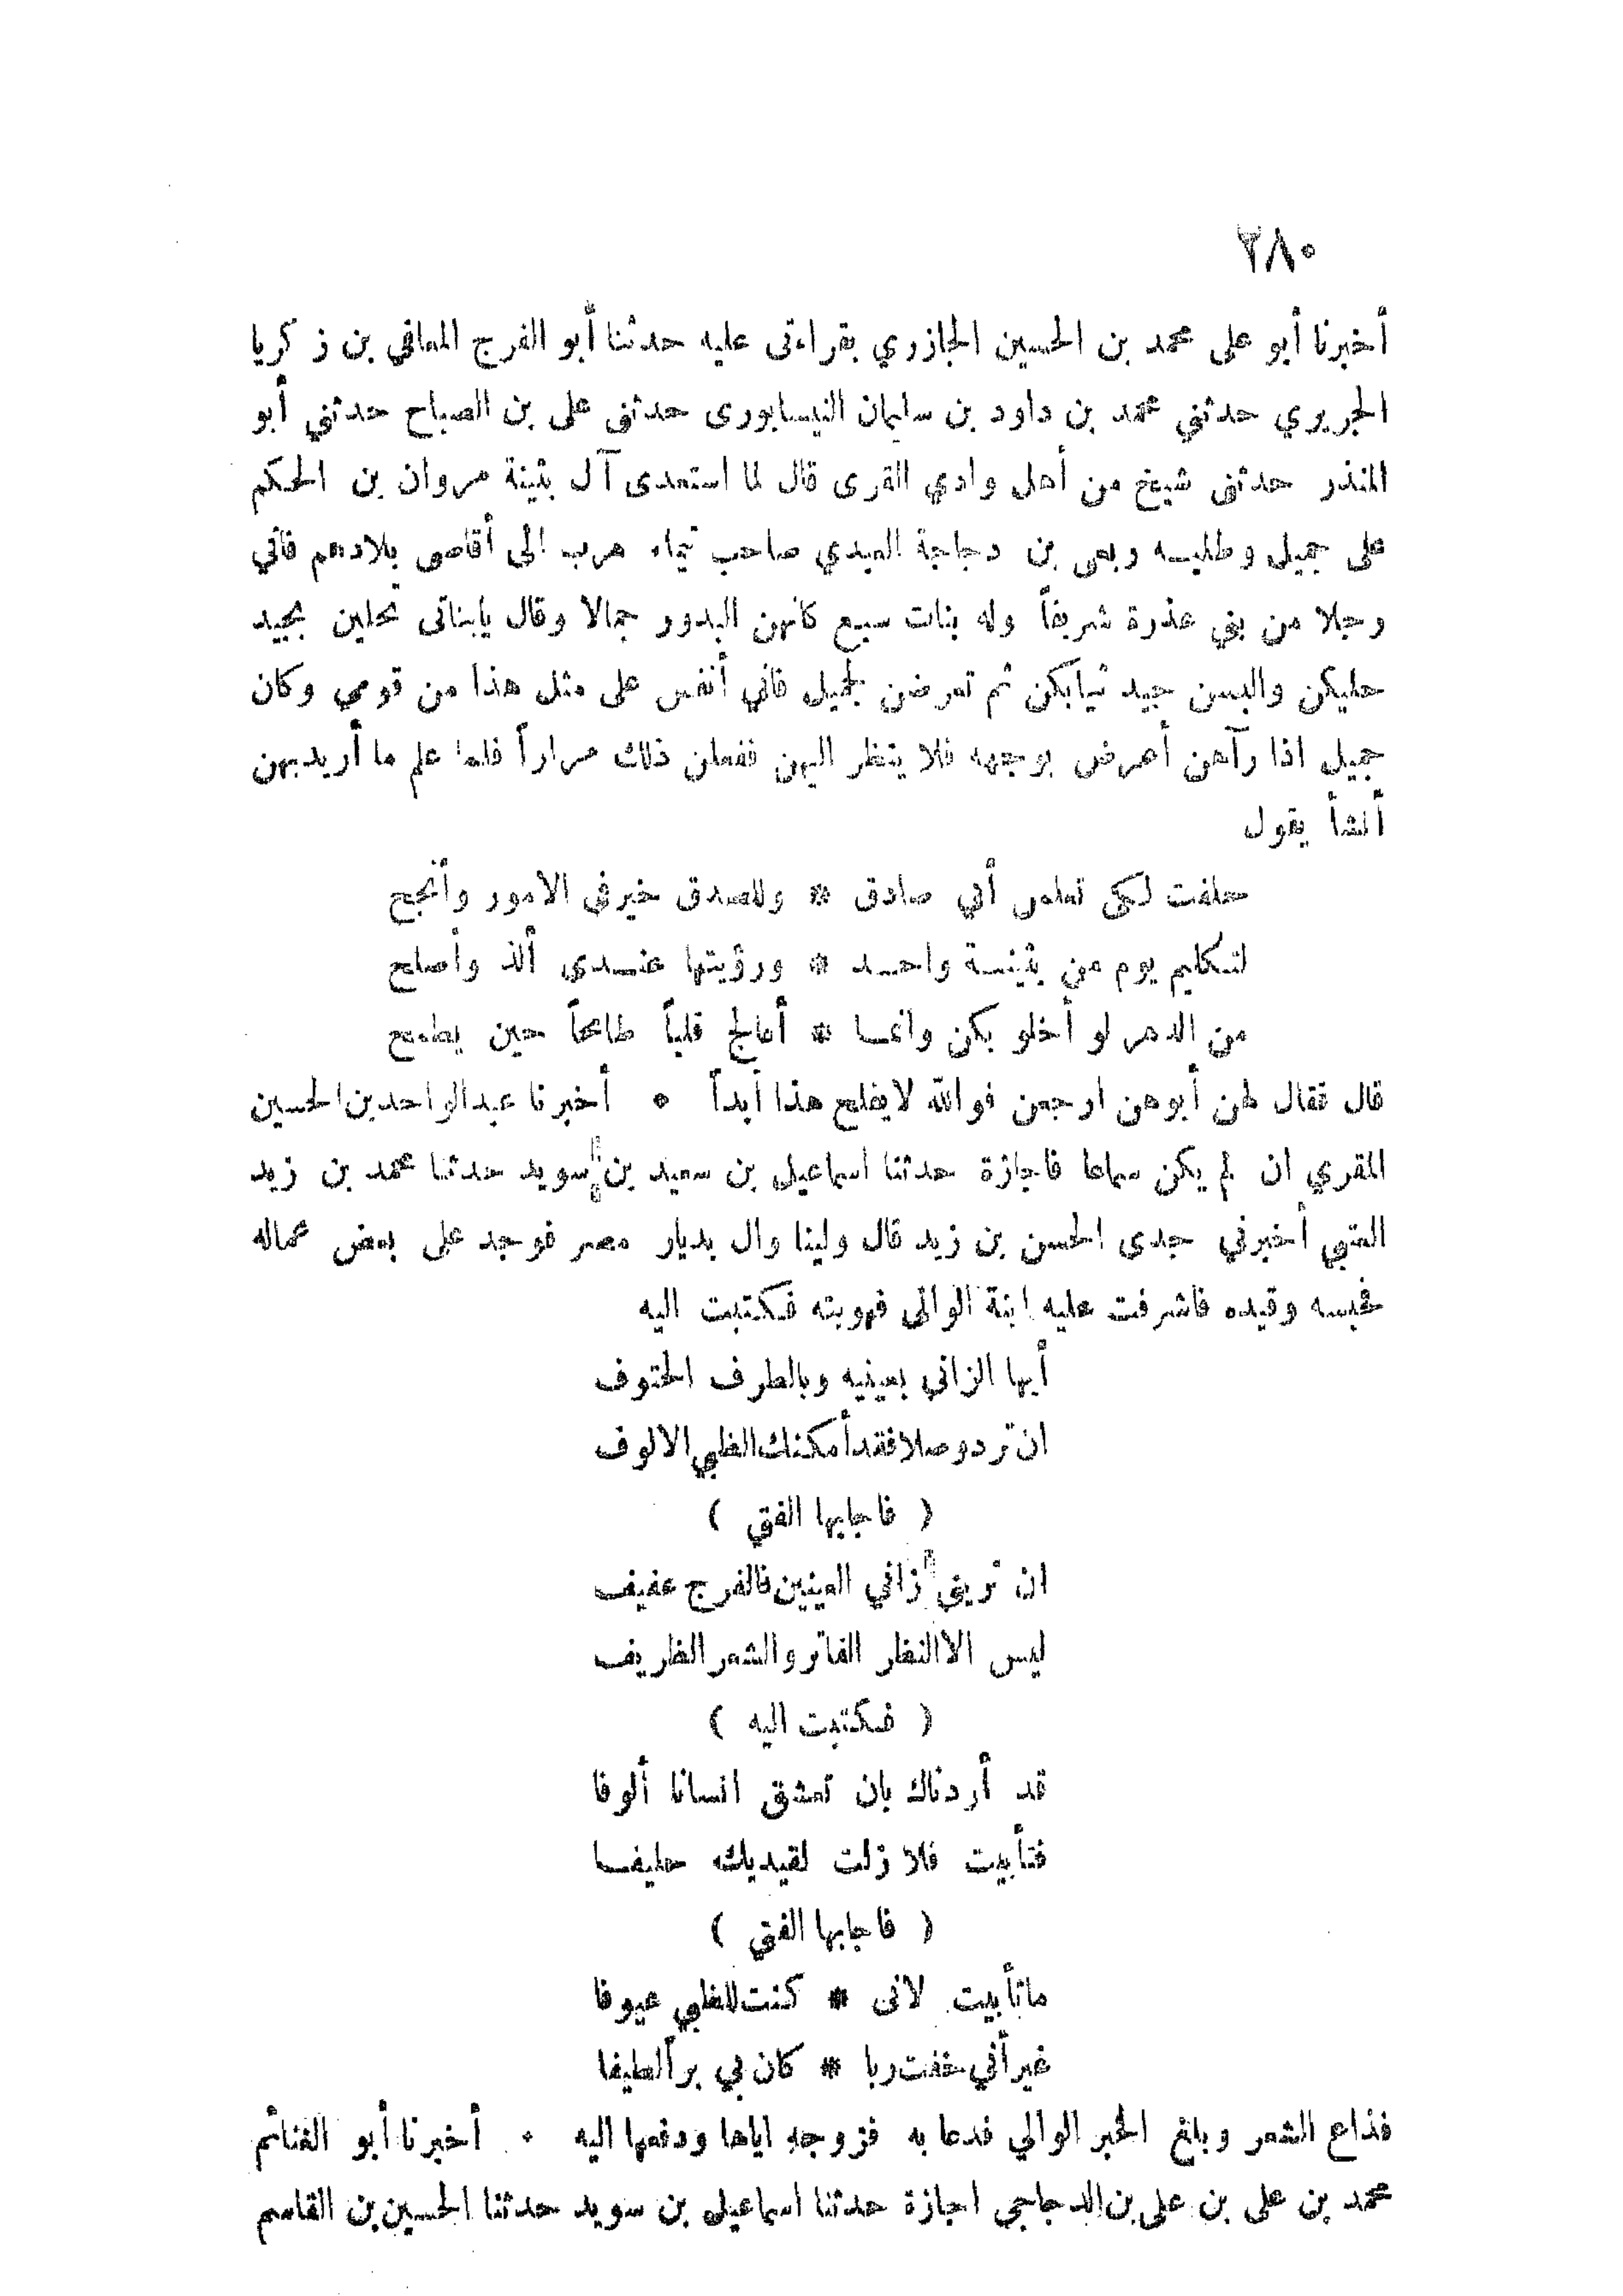 ٢٨٠
أخبرنا أبو على محمد بن الحسين الجازري بقراءتى عليه حدثنا أبو الفرج المعافي بن زكريا
الجريري حدثني محمد بن داود بن سليمان النيسابورى حدثنى على بن الصباح حدثني أبو
المنذر حدثنى شيخ من أهل وادي القرى قال لما استعدى آل بثينة مروان بن الحكم
على جميل وطلبه ربعى بن دجاجة العبدي صاحب تيماء هرب الى أقاصى بلادهم فاتي
رجلا من بني عذرة شريفاً وله بنات سبع كانهن البدور جمالا وقال يابناتى تحلين بجيد
حليكن والبسن جيد ثيابكن ثم تعرضن لجميل فاني أنفس على مثل هذا من قومي وكان
جميل اذا رآهن أعرض بوجهه فلا ينظر اليهن ففعلن ذلك مراراً فلما علم ما أريد بهن
أنشأ يقول
حلفت لكى تعلمن أني صادق * وللصدق خير في الامور وأنجح
لتكليم يوم من بثينة واحد * ورؤيتها عندى ألذ وأصلح
من الدهر لو أخلو بكن وانما * أعالج قلباً طامحاً حين يطمح
قال فقال لهن أبوهن ارجعن فوالله لا يفلح هذا أبداً * أخبرنا عبد الواحد بن الحسين
المقري ان لم يكن سماعا فاجازة حدثنا اسماعيل بن سعيد بن سويد حدثنا محمد بن زيد
العتبي أخبرني جدى الحسن بن زيد قال ولينا وال بديار مصر فوجد على بعض عماله
فحبسه وقيده فاشرفت عليه ابنة الوالى فهويته فكتبت اليه
أيها الزاني بعينيه وبالطرف الحتوف
ان ترد وصلا فقد أمكنك الظبي الالوف
( فاجابها الفتى )
ان تريني زاني العينين فالفرج عفيف
ليس الا النظر الفاتر والشعر الظريف
( فكتبت اليه )
قد أردناك بان تعشق انسانا ألوفا
فتأبيت فلا زلت لقيديك حليفا
( فاجابها الفتى )
ماتأبيت لانى * كنت للظبي عيوفا
غير أني خفت ربا * كان بي براً لطيفا
فذاع الشعر وبلغ الخبر الوالي فدعا به فزوجه اياها ودفعها اليه * أخبرنا أبو الغنائم
محمد بن على بن على بن الدجاجي اجازة حدثنا اسماعيل بن سويد حدثنا الحسين بن القاسم